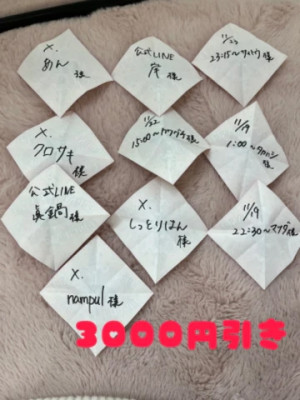 X.
めん
様
公式LINE
岸
様
11/23
23:15〜
様
X.
クロサキ
様
11/22
15:00〜
様
11/19
1:00〜
様
公式LINE
眞鍋
様
X.
しっとりはん
様
11/19
22:30〜マツダ様
X.
nampul様
3000円引き